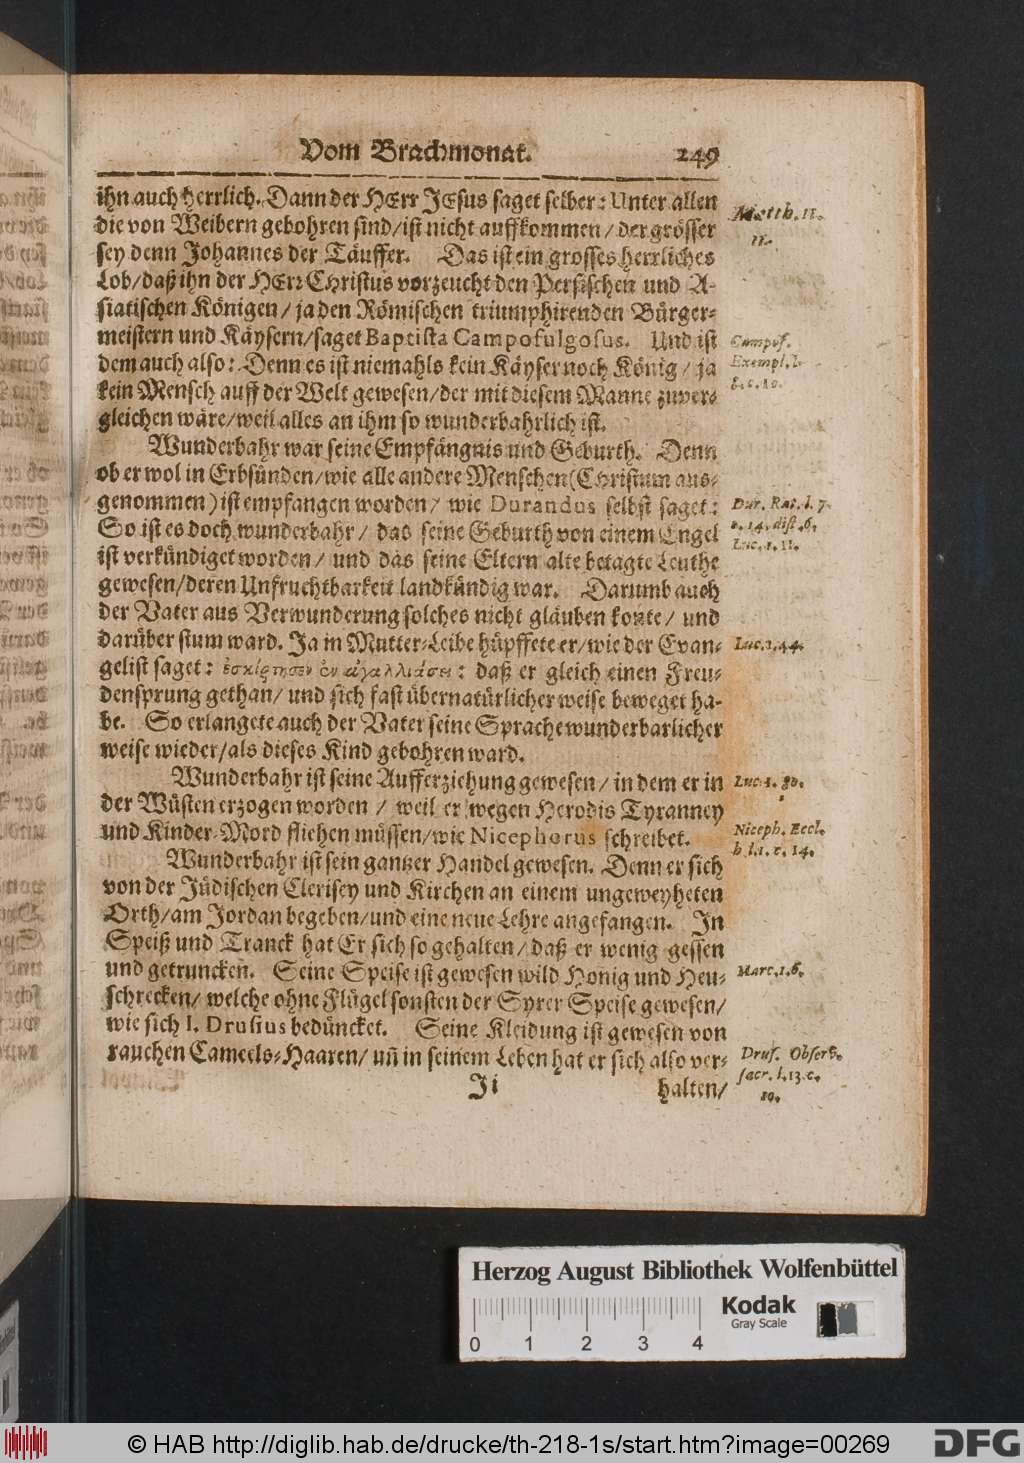 Vom Brachmonat. 249
ihn auch herrlich. Dann der HErr JEsus saget selber: Unter allen
die von Weibern gebohren sind/ist nicht auffkommen/der grösser
sey denn Johannes der Täuffer. Das ist ein grosses herrliches
Lob/daß ihn der HErr Christus vorzeucht den Persischen und A-
siatischen Königen/ja den Römischen triumphirenden Bürger-
meistern und Käysern/saget Baptista Campofulgosus. Und ist
dem auch also: Denn es ist niemahls kein Käyser noch König/ja
kein Mensch auff der Welt gewesen/der mit diesem Manne zuver-
gleichen wäre/weil alles an ihm so wunderbahrlich ist.
Wunderbahr war seine Empfängnis und Geburth. Denn
ob er wol in Erbsünden/wie alle andere Menschen(Christum aus-
genommen) ist empfangen worden/ wie Durandus selbst saget:
So ist es doch wunderbahr/ das seine Geburth von einem Engel
ist verkündiget worden/ und das seine Eltern alte betagte Leuthe
gewesen/deren Unfruchtbarkeit landkündig war. Darumb auch
der Vater aus Verwunderung solches nicht gläuben konte/ und
darüber stum ward. Ja in Mutter-Leibe hüpffete er/wie der Evan-
gelist saget: ἐσκίρτησεν ἐν ἀγαλλιάσει: daß er gleich einen Freu-
densprung gethan/ und sich fast übernatürlicher weise beweget ha-
be. So erlangete auch der Vater seine Sprache wunderbarlicher
weise wieder/als dieses Kind gebohren ward.
Wunderbahr ist seine Aufferziehung gewesen/ in dem er in
der Wüsten erzogen worden/ weil er wegen Herodis Tyranney
und Kinder-Mord fliehen müssen/wie Nicephorus schreibet.
Wunderbahr ist sein gantzer Handel gewesen. Denn er sich
von der Jüdischen Clerisey und Kirchen an einem ungeweyheten
Orth/am Jordan begeben/und eine neue Lehre angefangen. In
Speiß und Tranck hat Er sich so gehalten/daß er wenig gessen
und getruncken. Seine Speise ist gewesen wild Honig und Heu-
schrecken/ welche ohne Flügel sonsten der Syrer Speise gewesen/
wie sich I. Drusius bedüncket. Seine Kleidung ist gewesen von
rauchen Cameels-Haaren/ uñ in seinem Leben hat er sich also ver-
Ji halten/
Matth. 11.
11.
Campof.
Exempl. l.
8. c. 10.
Dur. Rat. l. 7.
c. 14. dist. 6.
Luc. 1. 11.
Luc. 1, 44.
Luc. 1. 80.
Niceph. Eccl.
h l. 1. c. 14.
Marc. 1. 6.
Drus. Observ.
sacr. l. 13. c.
10.
Herzog August Bibliothek Wolfenbüttel
Kodak
Gray Scale
0 1 2 3 4
© HAB http://diglib.hab.de/drucke/th-218-1s/start.htm?image=00269
DFG